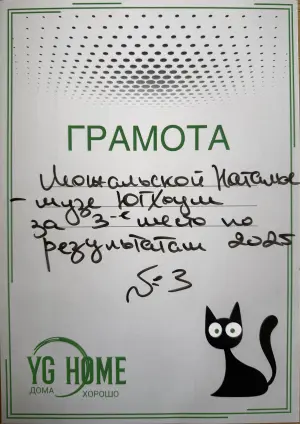 ГРАМОТА
Можальской Наталье
- музе ЮГХоум
за 3-е место по
результатам 2025
№ 3
YG HOME
ДОМА ХОРОШО